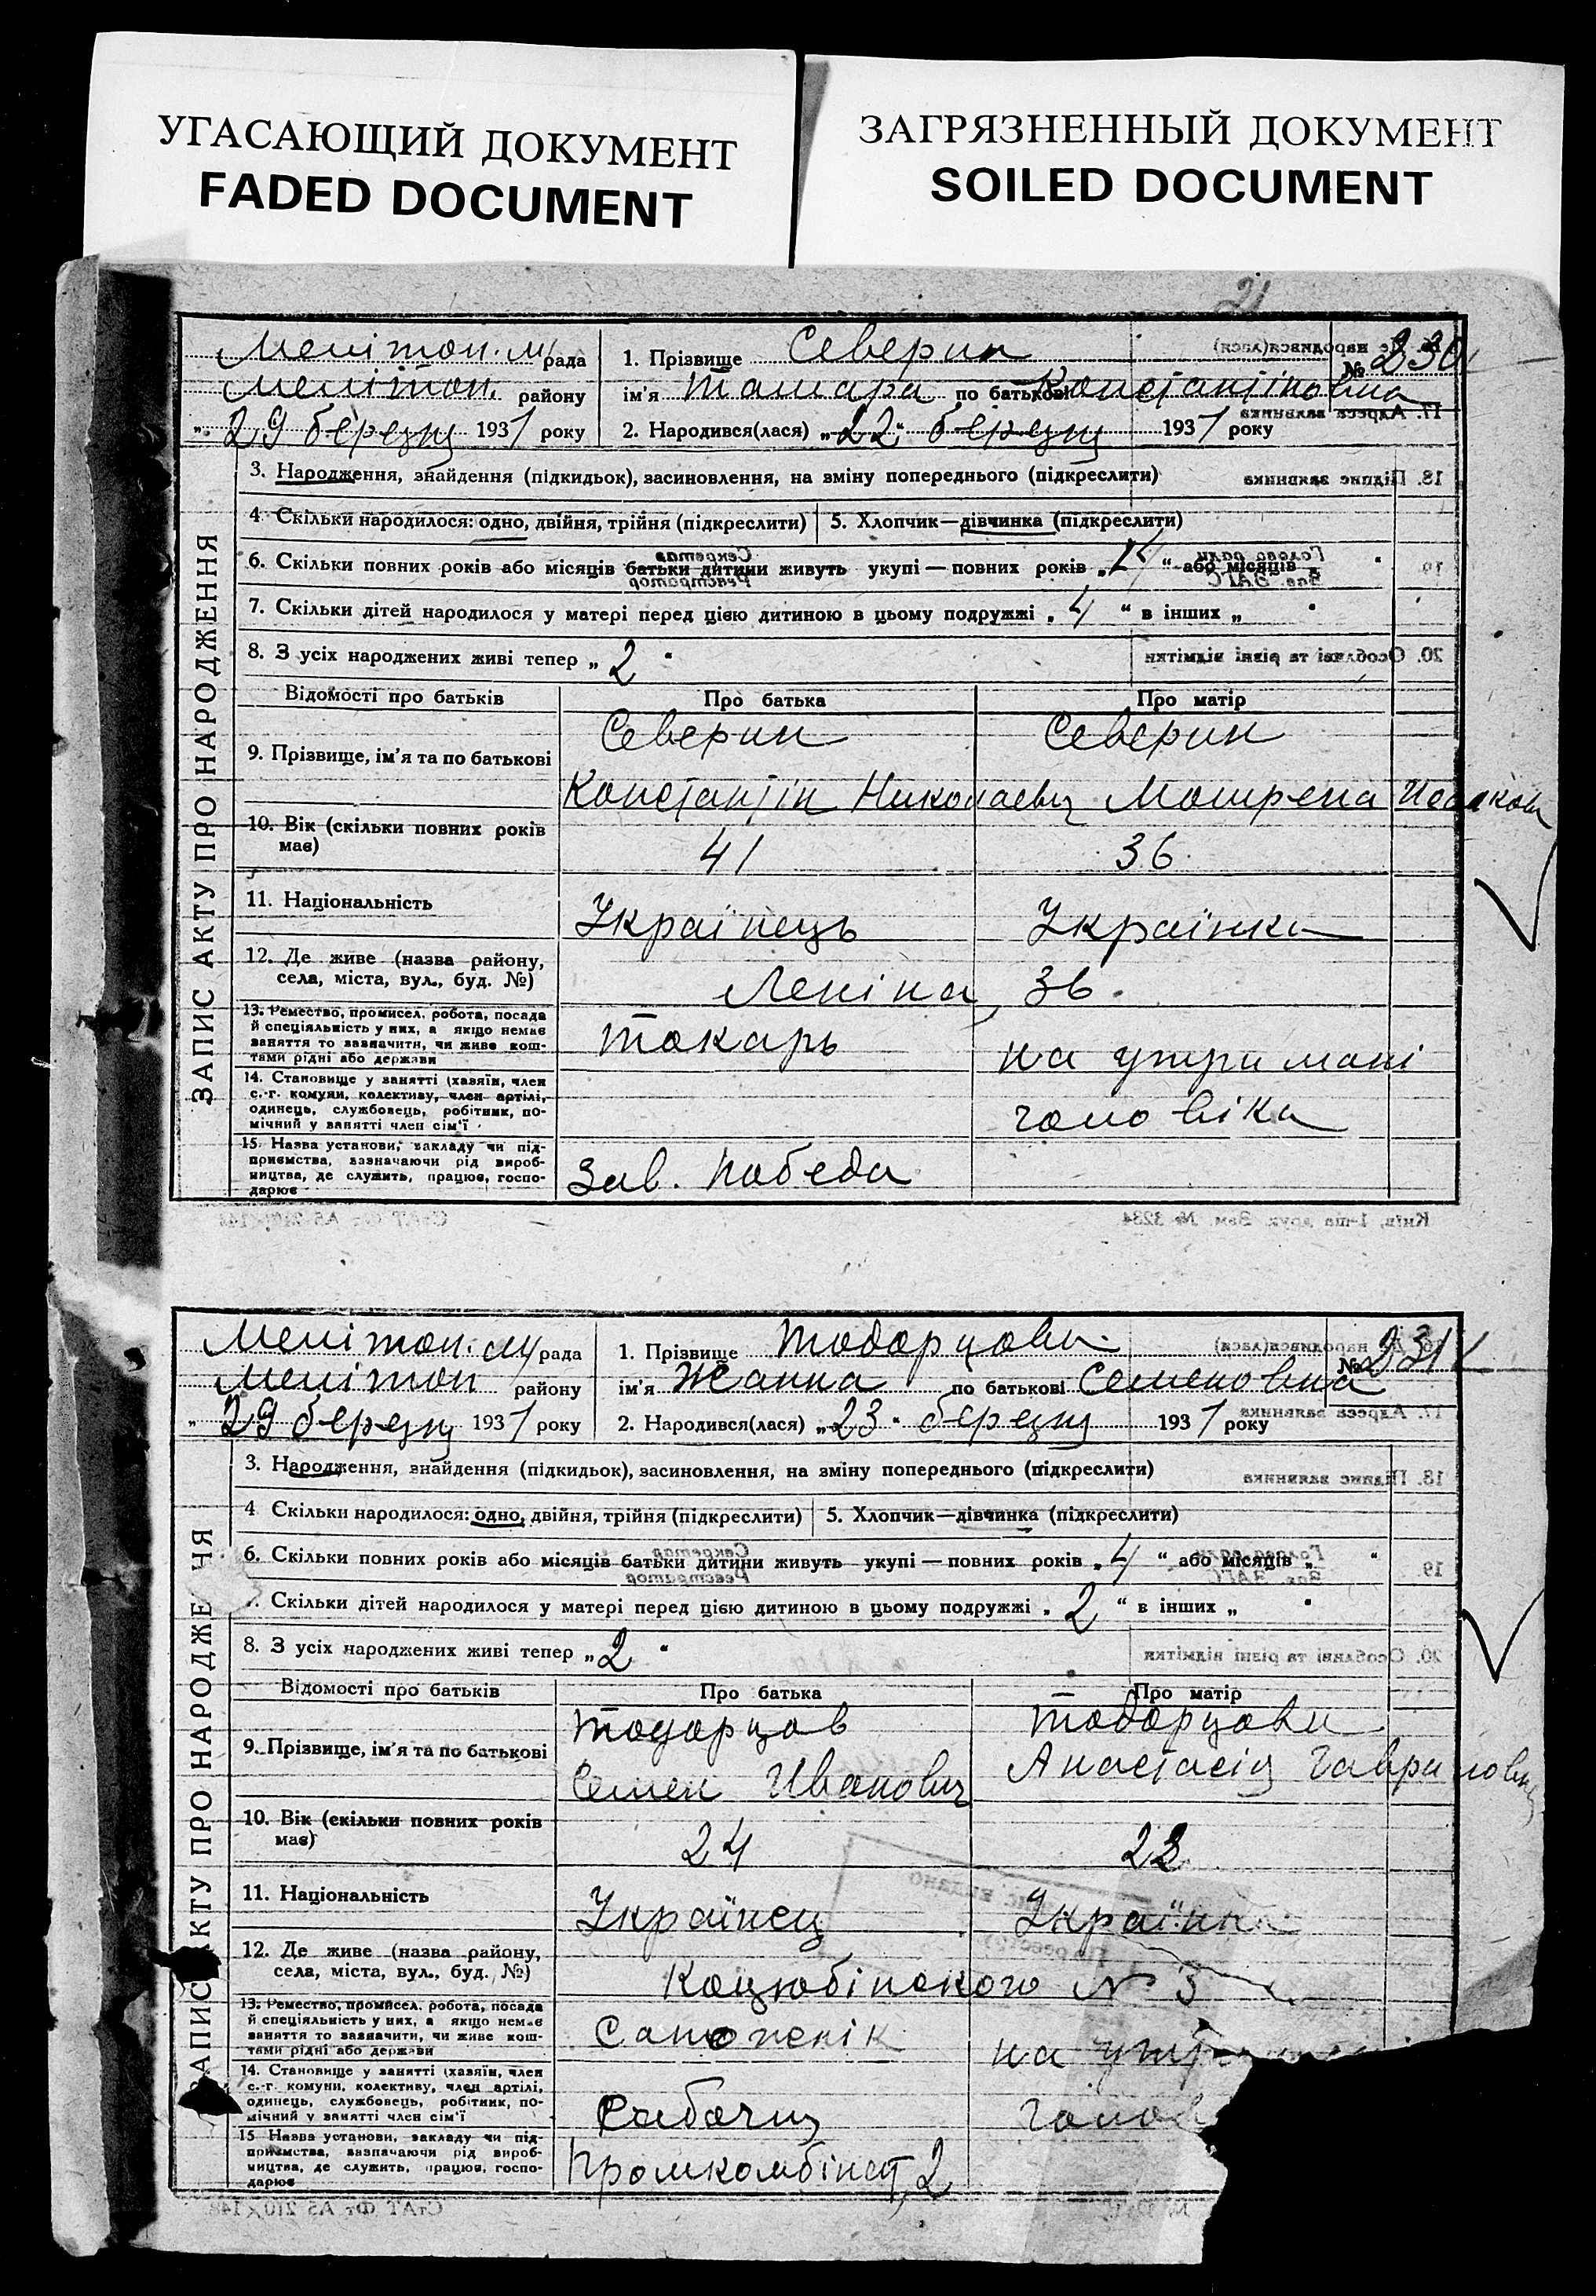 УГАСАЮЩИЙ ДОКУМЕНТ
FADED DOCUMENT
ЗАГРЯЗНЕННЫЙ ДОКУМЕНТ
SOILED DOCUMENT
21
ЗАПИС АКТУ ПРО НАРОДЖЕННЯ
Мелітоп. м рада
Мелітоп. району
„29 березня 1937 року
1. Прізвище Северин
№ 230
ім'я Тамара по батькові Константіновна
2. Народився(лася) „22“ березня 1937 року
3. Народження, знайдення (підкидьок), засиновлення, на зміну попереднього (підкреслити)
4 Скільки народилося: одно, двійня, трійня (підкреслити) 5. Хлопчик—дівчинка (підкреслити)
6. Скільки повних років або місяців батьки дитини живуть укупі — повних років „ “ або місяців „ “
7. Скільки дітей народилося у матері перед цією дитиною в цьому подружжі „4“ в інших „ “
8. З усіх народжених живі тепер „2“
Відомості про батьків Про батька Про матір
9. Прізвище, ім'я та по батькові
Северин Северин
Константін Николаевич Мотрена
10. Вік (скільки повних років має) 41 36
11. Національність Українець Українка
12. Де живе (назва району, села, міста, вул., буд. №) Леніна, 36.
13. Ремество, промисел, робота, посада й спеціяльність у них, а якщо немає заняття то зазначити, чи живе коштами рідні або держави
токарь на утримані
14. Становище у занятті (хазяїн, член с.-г. комуни, колективу, член артілі, одинець, службовець, робітник, помічний у занятті член сім'ї
чоловіка
15. Назва установи, закладу чи підприємства, зазначаючи рід виробництва, де служить, працює, господарює
Зав. Победа
ЗАПИС АКТУ ПРО НАРОДЖЕ ЧЯ
Мелітоп. м рада
Мелітоп району
„29 березня 1937 року
1. Прізвище Тодорцова
№ 231
ім'я Жанна по батькові Семеновна
2. Народився(лася) „23“ березня 1937 року
3. Народження, знайдення (підкидьок), засиновлення, на зміну попереднього (підкреслити)
4 Скільки народилося: одно, двійня, трійня (підкреслити) 5. Хлопчик—дівчинка (підкреслити)
6. Скільки повних років або місяців батьки дитини живуть укупі — повних років „4“ або місяців „ “
Скільки дітей народилося у матері перед цією дитиною в цьому подружжі „2“ в інших „ “
8. З усіх народжених живі тепер „2“
Відомості про батьків Про батька Про матір
9. Прізвище, ім'я та по батькові
Тодорцов Тодорцова
Семен Иванович Анастасія Гавриловна
10. Вік (скільки повних років має) 24 22
11. Національність Українец Українка
12. Де живе (назва району, села, міста, вул., буд. №) Коцюбінского № 3
13. Ремество, промисел, робота, посада й спеціяльність у них, а якщо немає заняття то зазначити, чи живе коштами рідні або держави
Сапожнік на
14. Становище у занятті (хазяїн, член с.-г. комуни, колективу, член артілі, одинець, службовець, робітник, помічний у занятті член сім'ї
Рабочий
15 Назва установи, закладу чи підприємства, зазначаючи рід виробництва, де служить, працює, господарює
Промкомбінат, 2